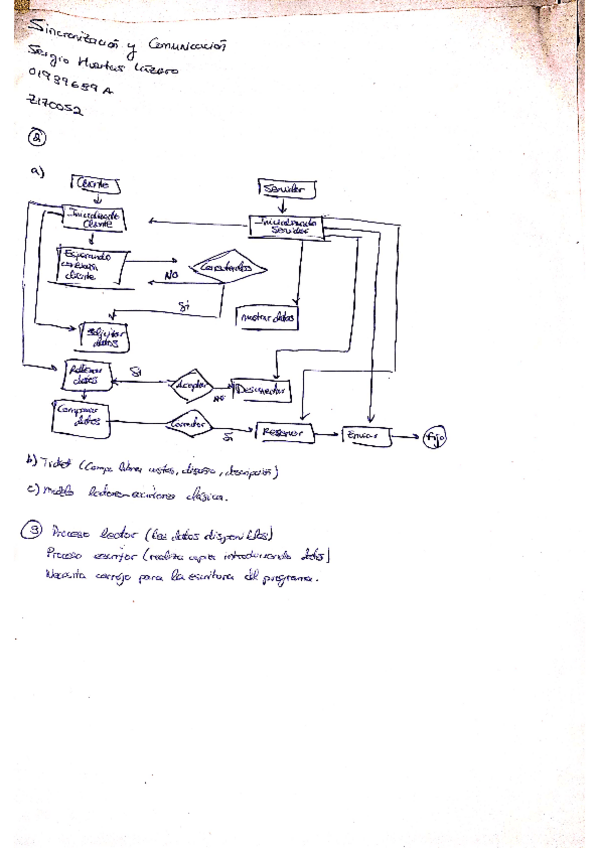 Sincronización y Comunicación
Sergio Huertas Lázaro
01989689A
Z170052
2
a)
Cliente
Servidor
Inicializando
Cliente
Inicializando
Servidor
Esperando
conexión
cliente
Conectados
NO
Si
mostrar datos
Solicitar
datos
Rellenar
datos
Si
Aceptar
NO
Desconectar
Comprobar
datos
Correctos
Si
Reservar
Enviar
Fijo
b) Ticket (Campo
c) Modelo lectores-escritores clásico.
3 Proceso lector (lee datos disponibles)
Proceso escritor (realiza introduciendo datos)
Necesita cerrojo para la escritura del programa.